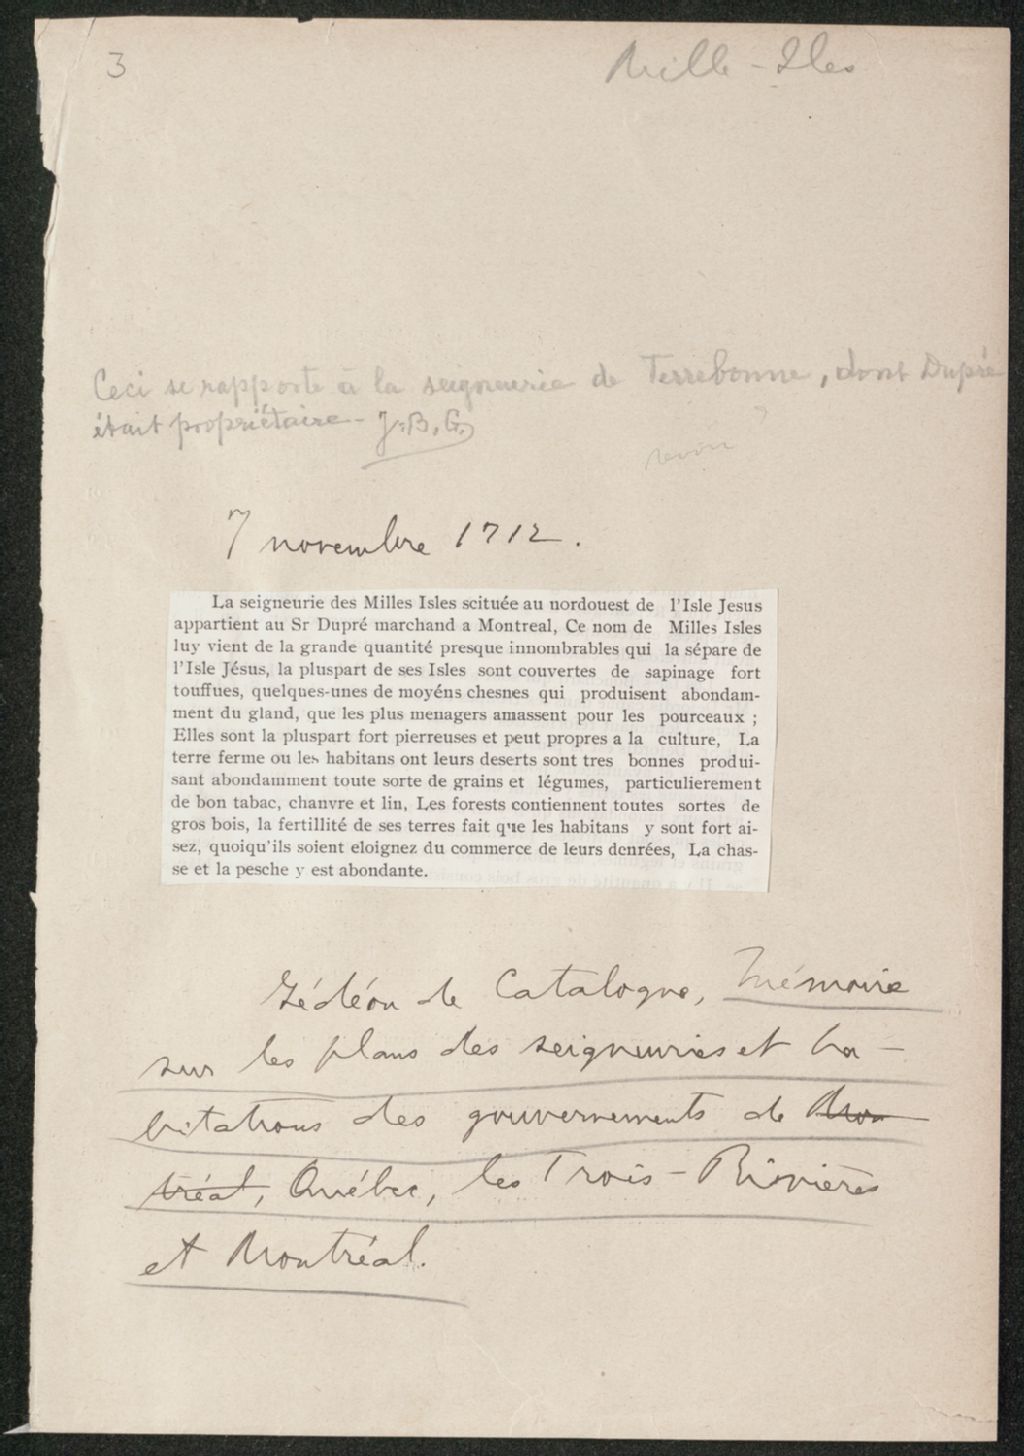 3
Mille-Iles
Ceci se rapporte à la seigneurie de Terrebonne, dont Dupré
était propriétaire - J.-B. G.
7 novembre 1712.
La seigneurie des Milles Isles scituée au nordouest de l'Isle Jesus
appartient au Sr Dupré marchand a Montreal, Ce nom de Milles Isles
luy vient de la grande quantité presque innombrables qui la sépare de
l'Isle Jésus, la pluspart de ses Isles sont couvertes de sapinage fort
touffues, quelques-unes de moyéns chesnes qui produisent abondam-
ment du gland, que les plus menagers amassent pour les pourceaux ;
Elles sont la pluspart fort pierreuses et peut propres a la culture, La
terre ferme ou les habitans ont leurs deserts sont tres bonnes produi-
sant abondamment toute sorte de grains et légumes, particulierement
de bon tabac, chanvre et lin, Les forests contiennent toutes sortes de
gros bois, la fertillité de ses terres fait que les habitans y sont fort ai-
sez, quoiqu'ils soient eloignez du commerce de leurs denrées, La chas-
se et la pesche y est abondante.
Gédéon de Catalogne, Mémoire
sur les plans des seigneuries et ha-
bitations des gouvernements de Mon
tréal, Québec, les Trois-Rivières
et Montréal.